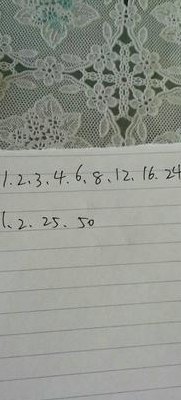 1、2、3、4、6、8、12、16、24
1、2、25、50